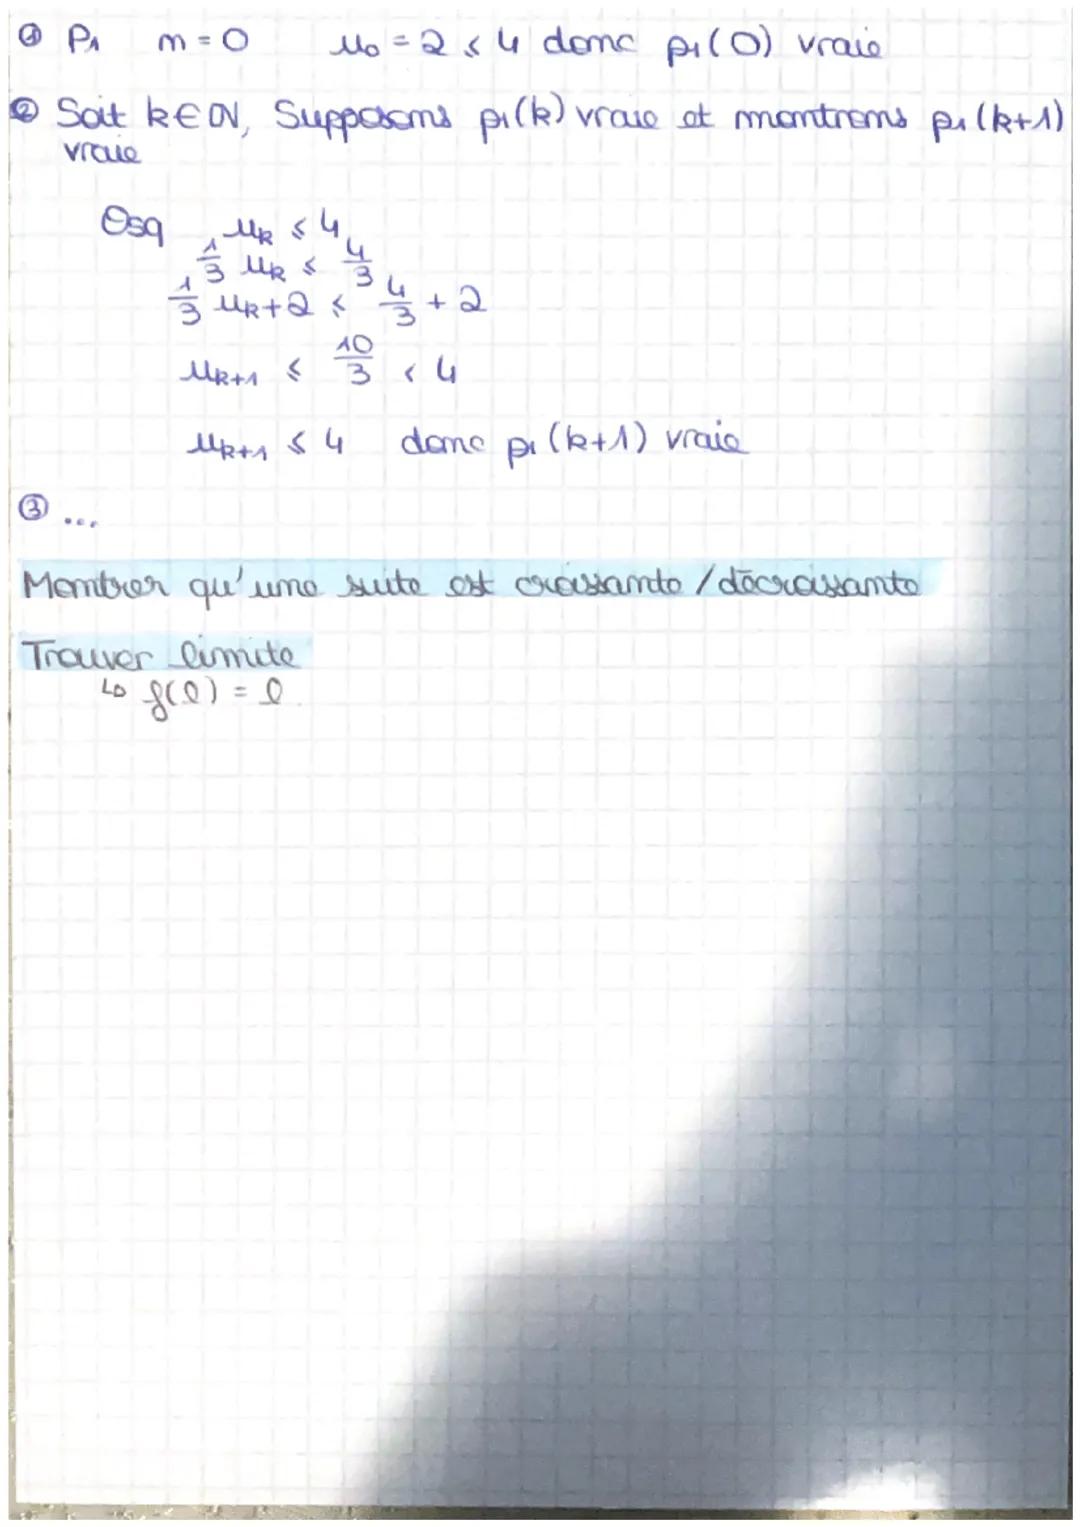 ① P₁ n = 0 u₀ = 2 ≤ 4 donc p₁(0) vraie
② Soit k ∈ ℕ, Supposons p₁(k) vraie et montrons p₁(k+1)
vraie
Osq u_k ≤ 4
1/3 u_k ≤ 4/3
1/3 u_k + 2 ≤ 4/3 + 2
u_{k+1} ≤ 10/3 < 4
u_{k+1} ≤ 4 donc p₁(k+1) vraie
③ ...
Montrer qu'une suite est croissante / décroissante
Trouver limite
↳ f(l) = l